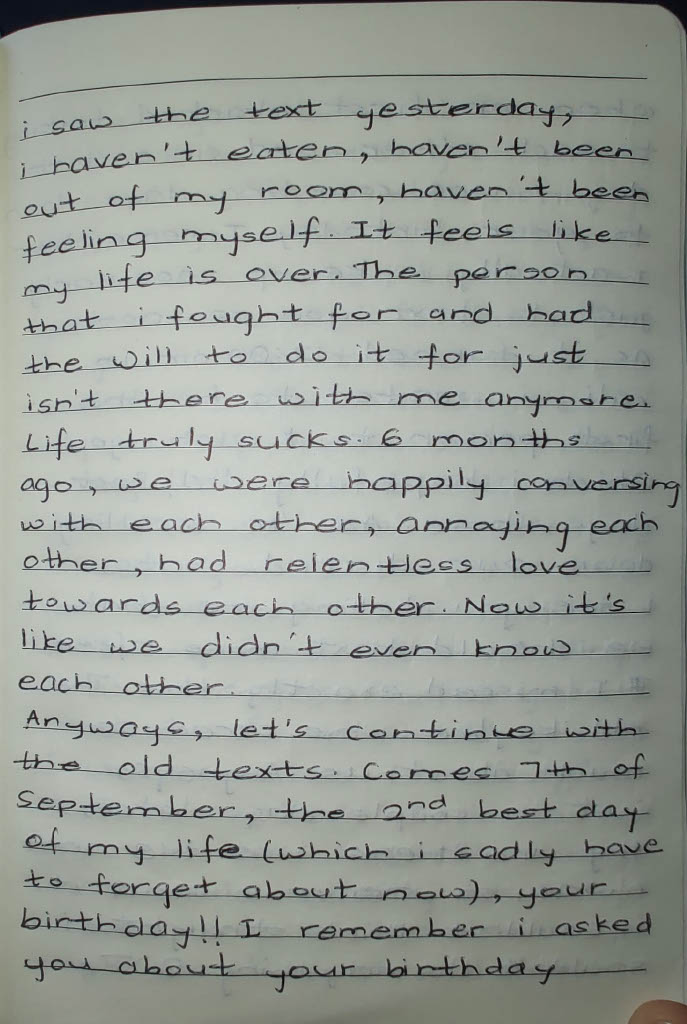 i saw the text yesterday,
i haven't eaten, haven't been
out of my room, haven't been
feeling myself. It feels like
my life is over. The person
that i fought for and had
the will to do it for just
isn't there with me anymore.
Life truly sucks. 6 months
ago, we were happily conversing
with each other, annoying each
other, had relentless love
towards each other. Now it's
like we didn't even know
each other.
Anyways, let's continue with
the old texts. Comes 7th of
September, the 2nd best day
of my life (which i sadly have
to forget about now), your
birthday!! I remember i asked
you about your birthday